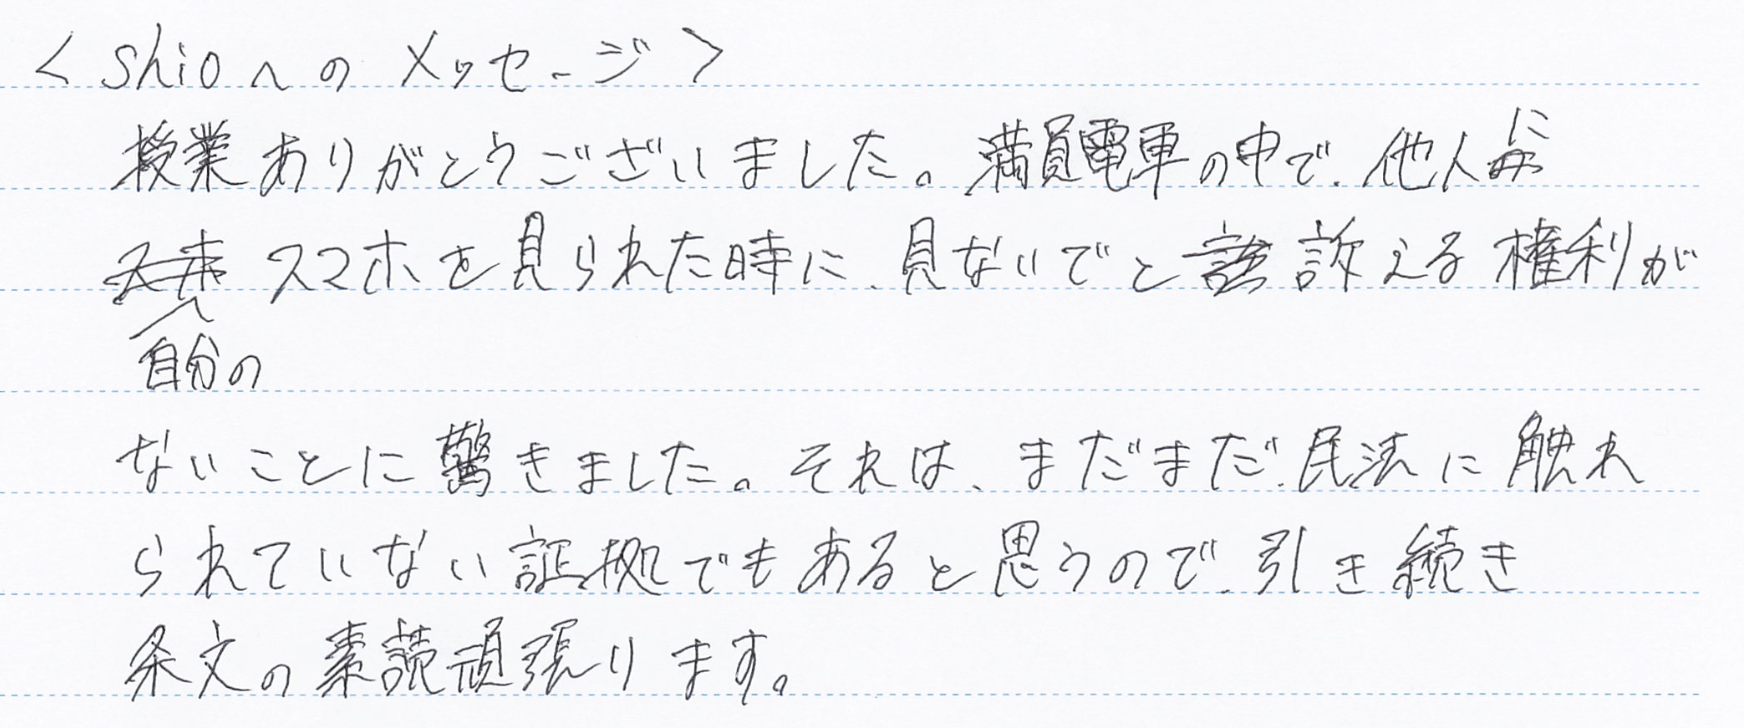 ＜shioへのメッセージ＞
授業ありがとうございました。満員電車の中で、他人に
自分のスマホを見られた時に、見ないでと訴える権利が
ないことに驚きました。それは、まだまだ、民法に触れ
られていない証拠でもあると思うので、引き続き
条文の素読頑張ります。